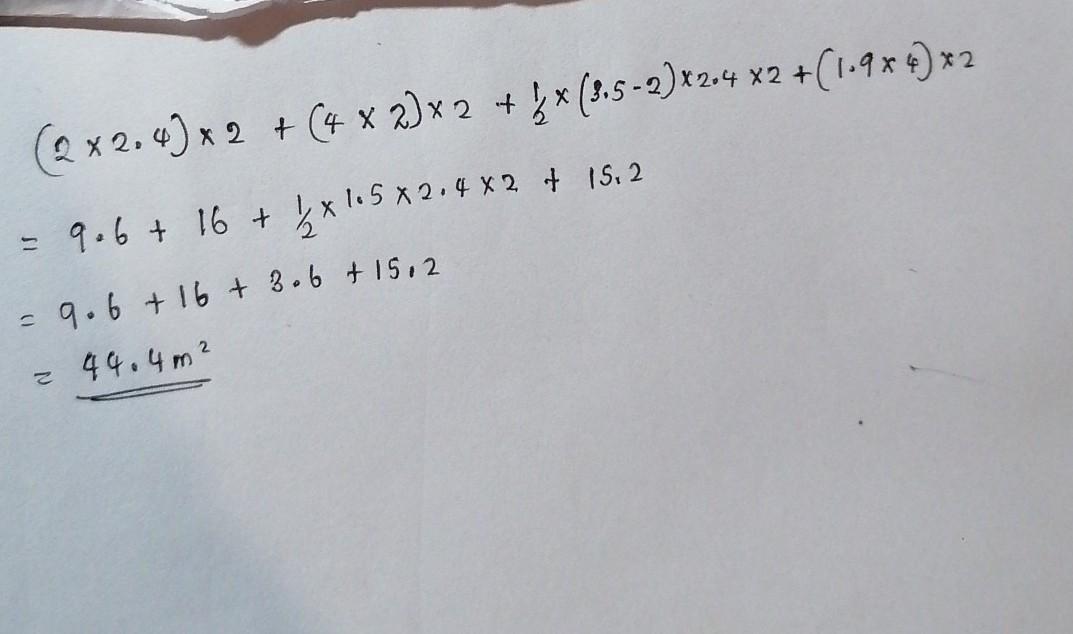 (2 × 2.4) × 2 + (4 × 2) × 2 + 1/2 × (3.5 - 2) × 2.4 × 2 + (1.9 × 4) × 2
= 9.6 + 16 + 1/2 × 1.5 × 2.4 × 2 + 15.2
= 9.6 + 16 + 3.6 + 15.2
= 44.4 m²